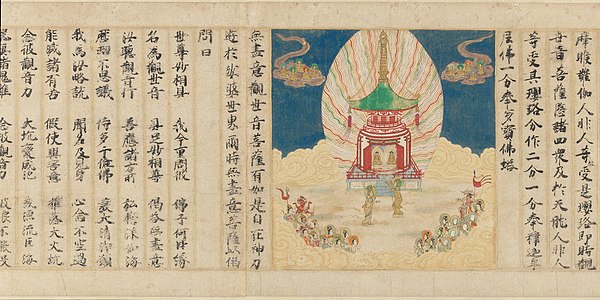 摩睺羅伽人非人等故受是瓔珞即時觀
世音菩薩愍諸四衆及於天龍人非人
等受其瓔珞分作二分一分奉釋迦牟
尼佛一分奉多寶佛塔
無盡意觀世音菩薩有如是自在神力
遊於娑婆世界爾時無盡意菩薩以偈
問曰
世尊妙相具 我今重問彼 佛子何因緣
名為觀世音 具足妙相尊 偈答無盡意
汝聽觀音行 善應諸方所 弘誓深如海
歷劫不思議 侍多千億佛 發大清淨願
我為汝略說 聞名及見身 心念不空過
能滅諸有苦 假使興害意 推落大火坑
念彼觀音力 火坑變成池 或漂流巨海
龍魚諸鬼難 念彼觀音力 波浪不能沒